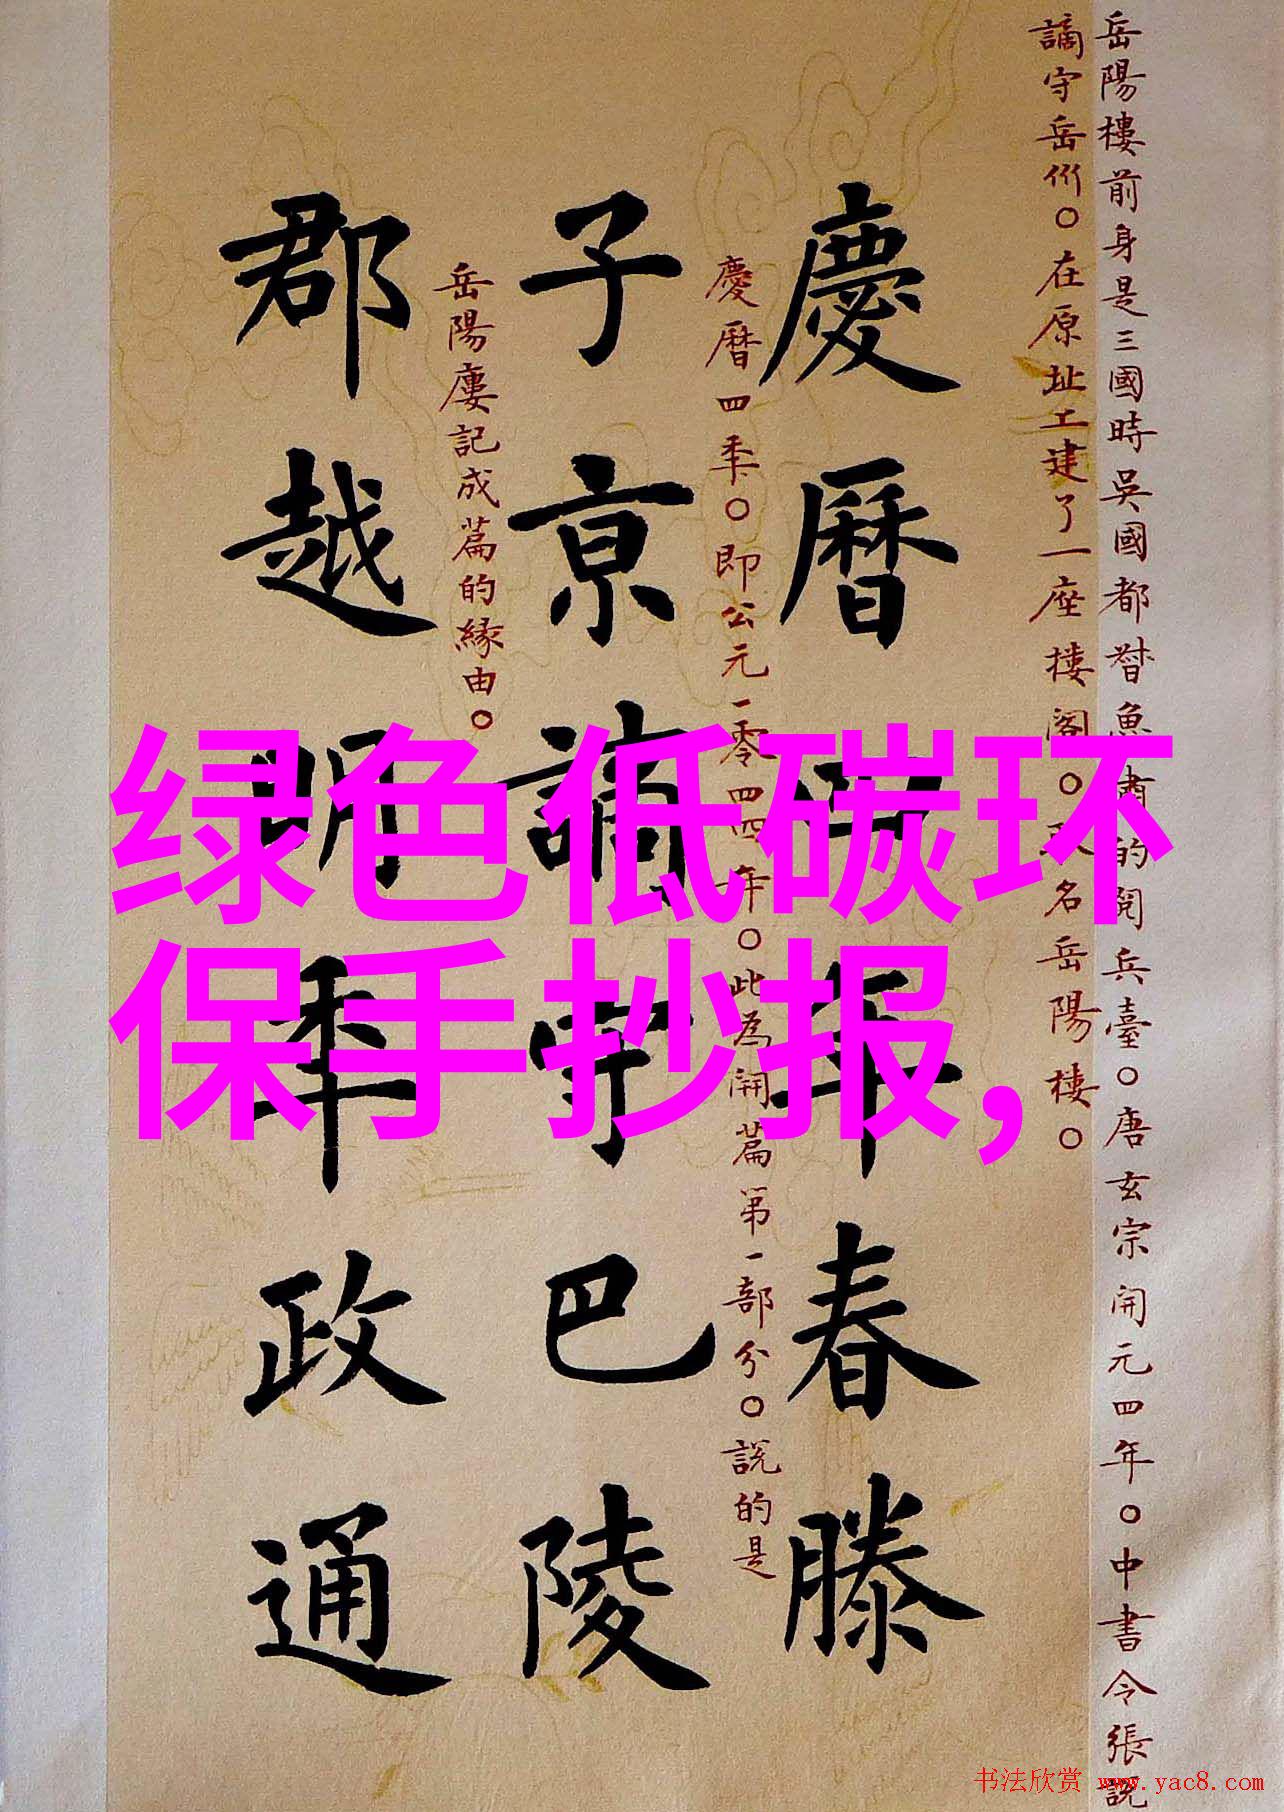 岳陽樓前身是三國時吳國都督魯肅的閱兵臺○唐玄宗開元四年○中書令張說
謫守岳州○在原址上建了一座樓閣○取名岳陽樓○
慶曆四年春滕
慶曆四秊○即公元一零四四年○此為開篇第一部分○說的是
子京謫守巴陵
岳陽樓記成篇的緣由○
郡越明秊政通
绿色低碳环
保手抄报,
书法欣赏 www.yac8.com